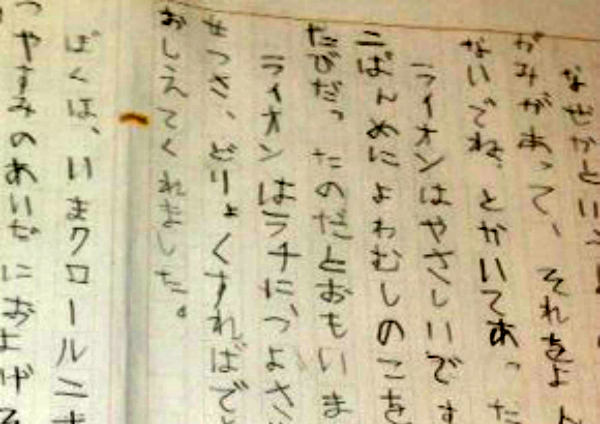 なぜかという
がみがあって、それをよん
ないでね。とかいてあった
ライオンはやさしいです
二ばんめによわむしのこを
たびだったのだとおもいま
ライオンはラチに、つよさ
もつさ、どりょくすればで
おしえてくれました。
ぼくは、いまクロール二十
つやすみのあいだにおよげる